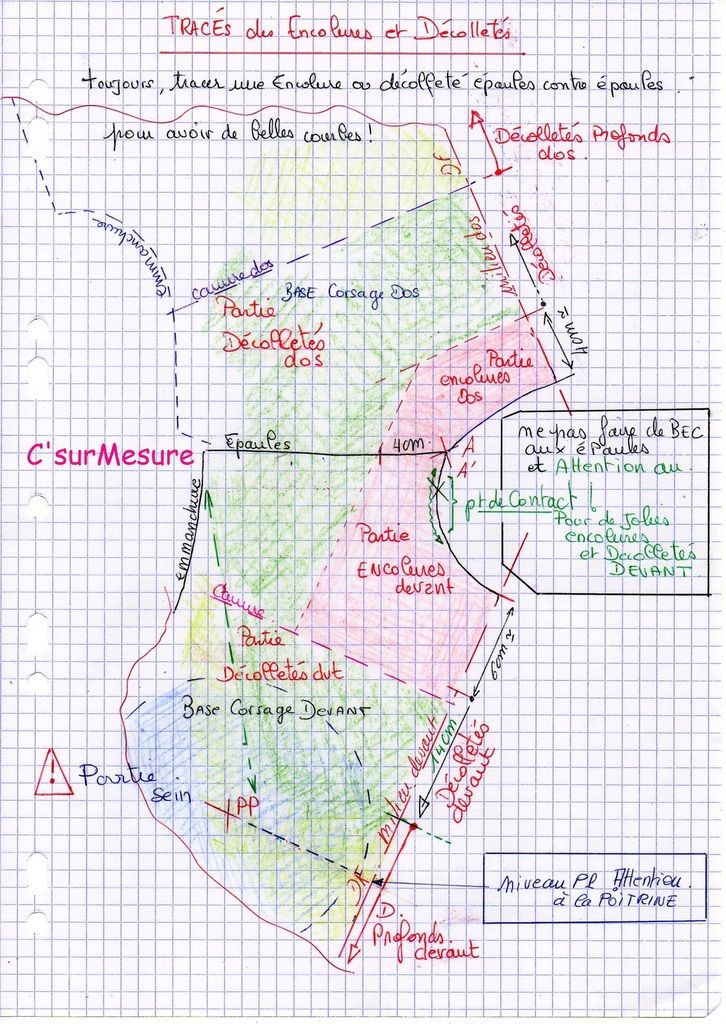 TRACÉS des Encolures et Décolletés
toujours, tracer une Encolure ou décolleté épaules contre épaules
pour avoir de belles courbes!
Décolletés Profonds
dos.
DF
milieu dos
Décolletés
emmanchure
carrure dos
BASE Corsage Dos
Partie
Décolletés
dos
4cm
Partie
encolures
Dos
Epaules
4cm
A
A'
C'surMesure
ne pas faire de BEC
aux épaules
et Attention au
pt de Contact!
Pour de Jolies
encolures
et Décolletés
DEVANT
emmanchure
Partie
ENCOLURES
devant
Carrure
6cm
Partie
Décolletés dvt
BASE Corsage DEVANT
milieu devant
14cm
Décolletés
devant
Partie
sein
PP
DF
niveau PP Attention
à la POITRINE
D.
Profonds
devant